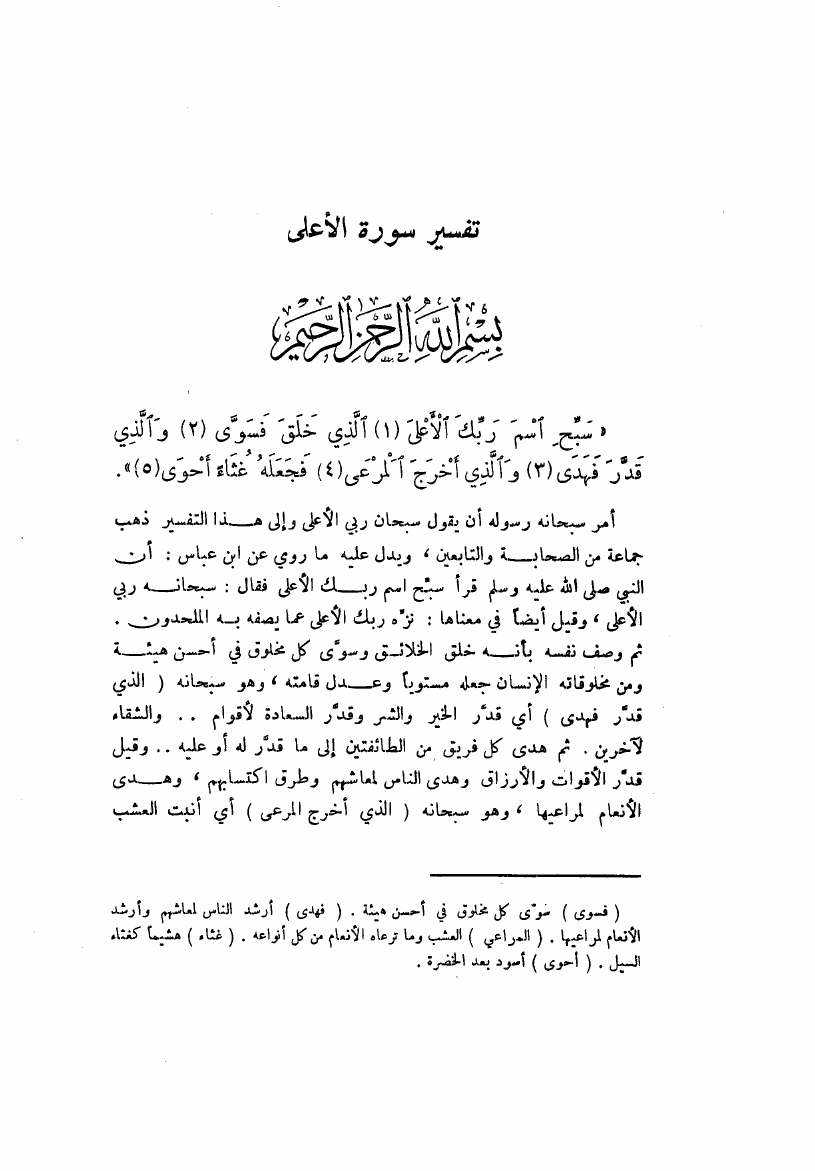 تفسير سورة الأعلى
بِسْمِ ٱللَّهِ ٱلرَّحْمَنِ ٱلرَّحِيمِ
« سَبِّحِ ٱسْمَ رَبِّكَ ٱلْأَعْلَىٰ (١) ٱلَّذِي خَلَقَ فَسَوَّى (٢) وَٱلَّذِي
قَدَّرَ فَهَدَى (٣) وَٱلَّذِي أَخْرَجَ ٱلْمَرْعَى (٤) فَجَعَلَهُ غُثَاءً أَحْوَى (٥)».
أمر سبحانه رسوله أن يقول سبحان ربي الأعلى وإلى هـذا التفسير ذهب
جماعة من الصحابـة والتابعين ، ويدل عليه ما روي عن ابن عباس : أن
النبي صلى الله عليه وسلم قرأ سبِّح اسم ربـك الأعلى فقال : سبحانـه ربي
الأعلى ، وقيل أيضاً في معناها : نزِّه ربك الأعلى عما يصفه بـه الملحدون .
ثم وصف نفسه بأنـه خلق الخلائـق وسوَّى كل مخلوق في أحسن هيئـة
ومن مخلوقاته الإنسان جعله مستوياً وعـدل قامته ، وهو سبحانه ( الذي
قدَّر فهدى ) أي قدَّر الخير والشر وقدَّر السعادة لأقوام .. والشقاء
لآخرين . ثم هدى كل فريق من الطائفتين إلى ما قدَّر له أو عليه .. وقيل
قدَّر الأقوات والأرزاق وهدى الناس لمعاشهم وطرق اكتسابهم ، وهـدى
الأنعام لمراعيها ، وهو سبحانه ( الذي أخرج المرعى ) أي أنبت العشب
( فسوى ) سَوّى كل مخلوق في أحسن هيئة . ( فهدى ) أرشد الناس لمعاشهم وأرشد
الأنعام لمراعيها . ( المراعي ) العشب وما ترعاه الأنعام من كل أنواعه . ( غثاء ) هشيماً كغثاء
السيل . ( أحوى ) أسود بعد الخضرة .